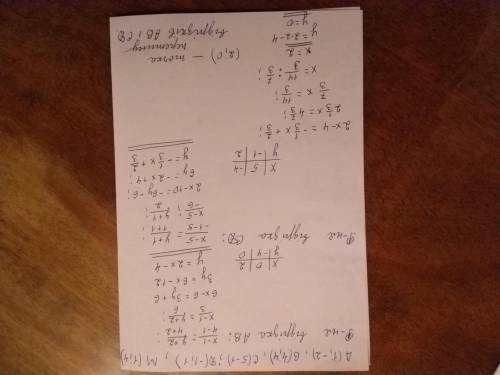 A(1,-2), B(4,4), C(5-1); D(-1;1), M(1;4)
Ф-ия відрізка AB:
(x-1)/(4-1) = (y+2)/(4+2);
(x-1)/3 = (y+2)/6
6x-6 = 3y+6
3y = 6x-12
y = 2x-4
x | 0 | 2
y | -4 | 0
Ф-ия відрізка CD:
(x-5)/(-1-5) = (y+1)/(1+1);
(x-5)/-6 = (y+1)/2;
2x-10 = -6y-6;
6y = -2x+4
y = -1/3x + 2/3
x | 5 | -4
y | -1 | 2
2x-4 = -1/3x + 2/3;
2 1/3x = 4 2/3;
7/3x = 14/3;
x = 14/3 : 7/3;
x = 2
y = 2·2-4
y = 0
(2;0) — точка
перетину
відрізків AB і CD